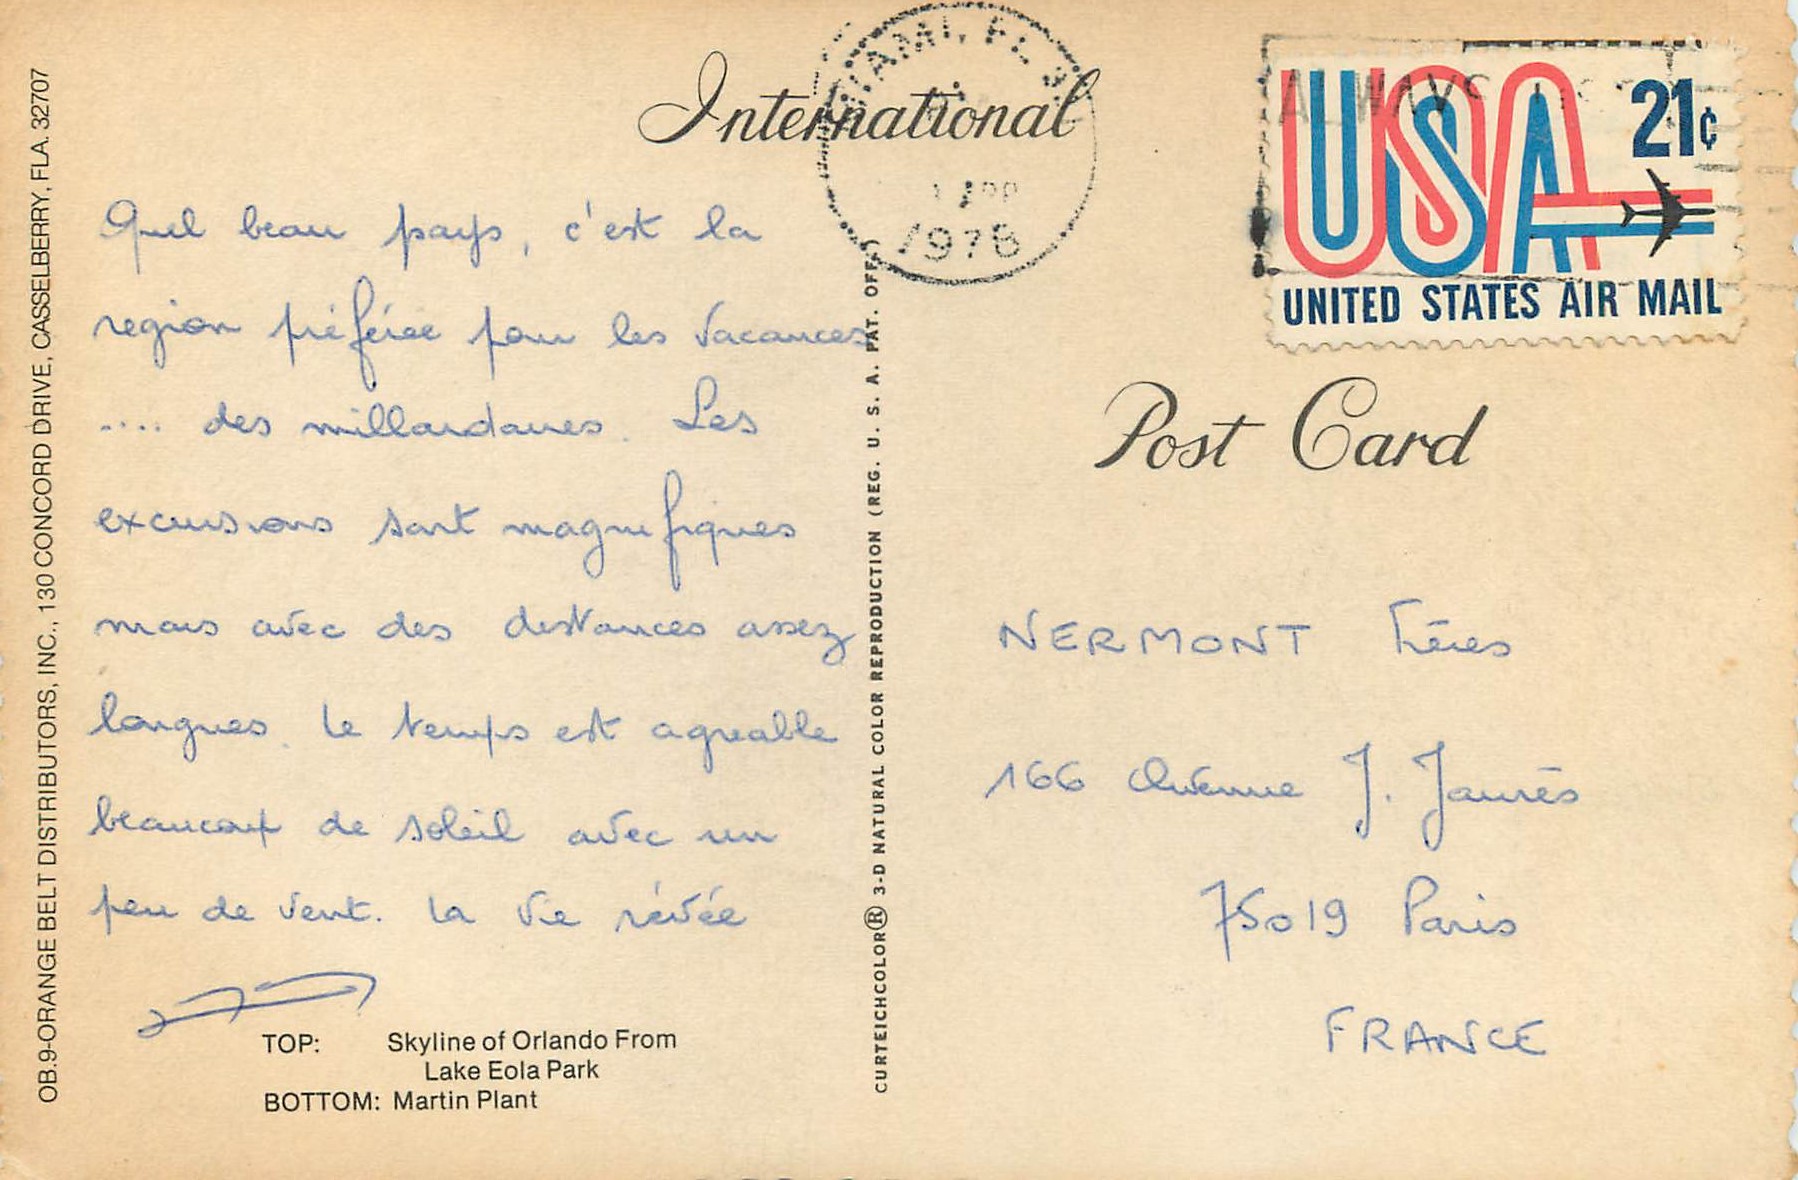 International
MIAMI, FL
1978
ALWAYS
USA 21¢
UNITED STATES AIR MAIL
Post Card
Quel beau pays, c'est la
region préférée pour les vacances
.... des millardaires. Les
excursions sont magnifiques
mais avec des distances assez
longues. Le temps est agreable
beaucoup de soleil avec un
peu de vent. La vie rêvée
NERMONT Frères
166 Avenue J. Jaurès
75019 Paris
FRANCE
TOP: Skyline of Orlando From
Lake Eola Park
BOTTOM: Martin Plant
OB.9-ORANGE BELT DISTRIBUTORS, INC., 130 CONCORD DRIVE, CASSELBERRY, FLA. 32707
CURTEICHCOLOR® 3-D NATURAL COLOR REPRODUCTION (REG. U. S. A. PAT. OFF.)